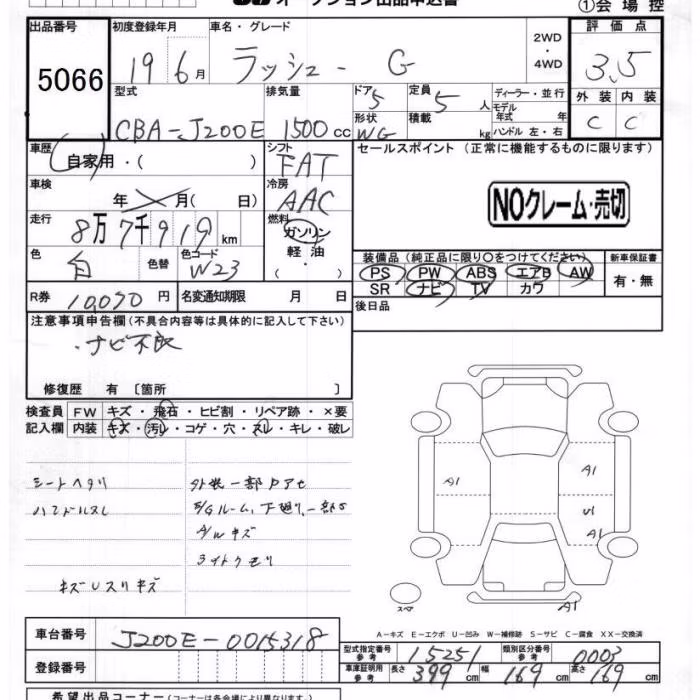 オークション出品申込書 ①会場控
出品番号 初度登録年月 車名・グレード 2WD・4WD 評価点
5066 19 6月 ラッシュ - G 3.5
型式 排気量 ドア 5 定員 5人 ディーラー・並行 外装 内装
CBA-J200E 1500cc 形状 WG 積載 kg モデル年式 年 ハンドル 左・右 C C
車歴 自家用・( ) シフト FAT セールスポイント (正常に機能するものに限ります)
車検 年 月( 日) 冷房 AAC NOクレーム・売切
走行 8万7千919km 燃料 ガソリン
色 白 色替 色コード W23 軽油・( ) 装備品 (純正品に限り○をつけてください) 新車保証書
PS PW ABS エアB AW 有・無
SR ナビ TV カワ
R券 10,070円 名変通知期限 月 日 後日品
注意事項申告欄 (不具合内容等は具体的に記入して下さい)
・ナビ不良
修復歴 有 〔箇所 〕
検査員 FW キズ・飛石・ヒビ割・リペア跡・×要
記入欄 内装 キズ・汚レ・コゲ・穴・スレ・キレ・破レ
シートヘタリ 外装一部ボアセ
ハンドルスレ E/Gルーム、下廻り、一部S
A/Wキズ
ライトクモリ
キズUスリキズ
A1 A1
U1
A1
スペア A1
A-キズ E-エクボ U-凹み W-補修跡 S-サビ C-腐食 XX-交換済
車台番号 J200E-0015318 型式指定番号 参考 15251 類別区分番号 参考 0003
登録番号 車庫証明用 参考 長さ 399cm 幅 169cm 高さ 169cm
希望出品コーナー(コーナーについては各会場により異なります。)